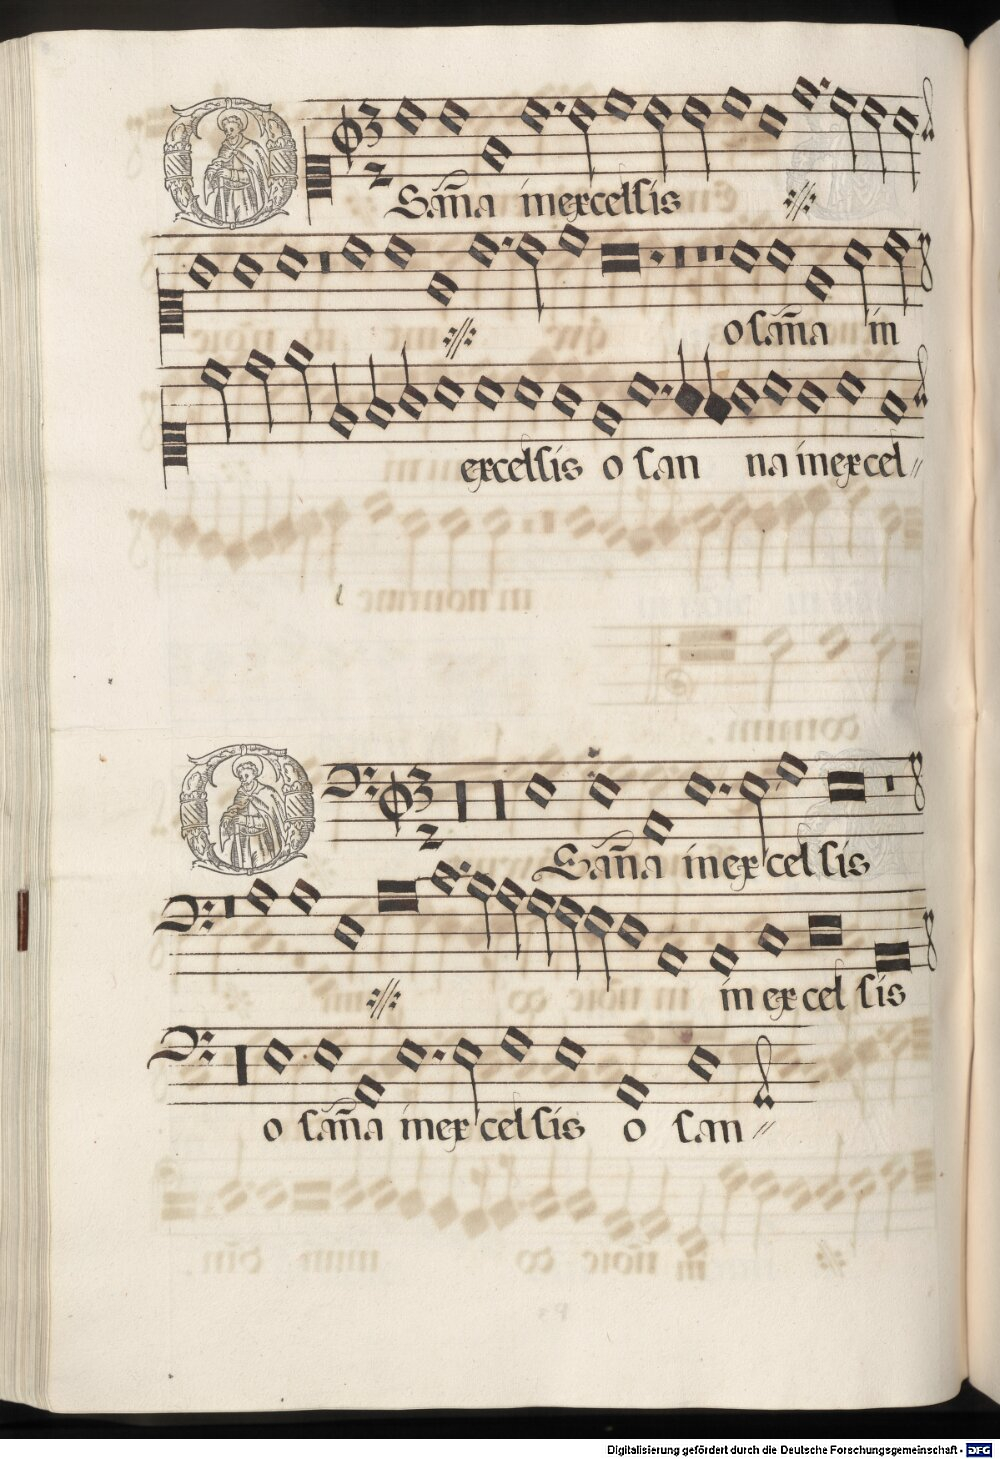 OSan̄a in excelsis
osan̄a in
excelsis o san na in excel〃
OSan̄a in excelsis
in excelsis
o san̄a in excelsis o san〃
Digitalisierung gefördert durch die Deutsche Forschungsgemeinschaft - DFG